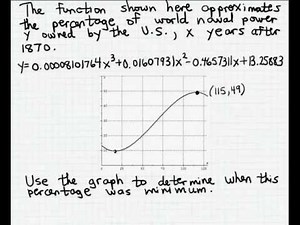 The function shown here approximates
the percentage of world naval power
y owned by the U.S., x years after
1870.
y=0.00008101764x³+0.0160793x²-0.465731x+13.25683
(115,49)
Use the graph to determine when this
percentage was minimum.